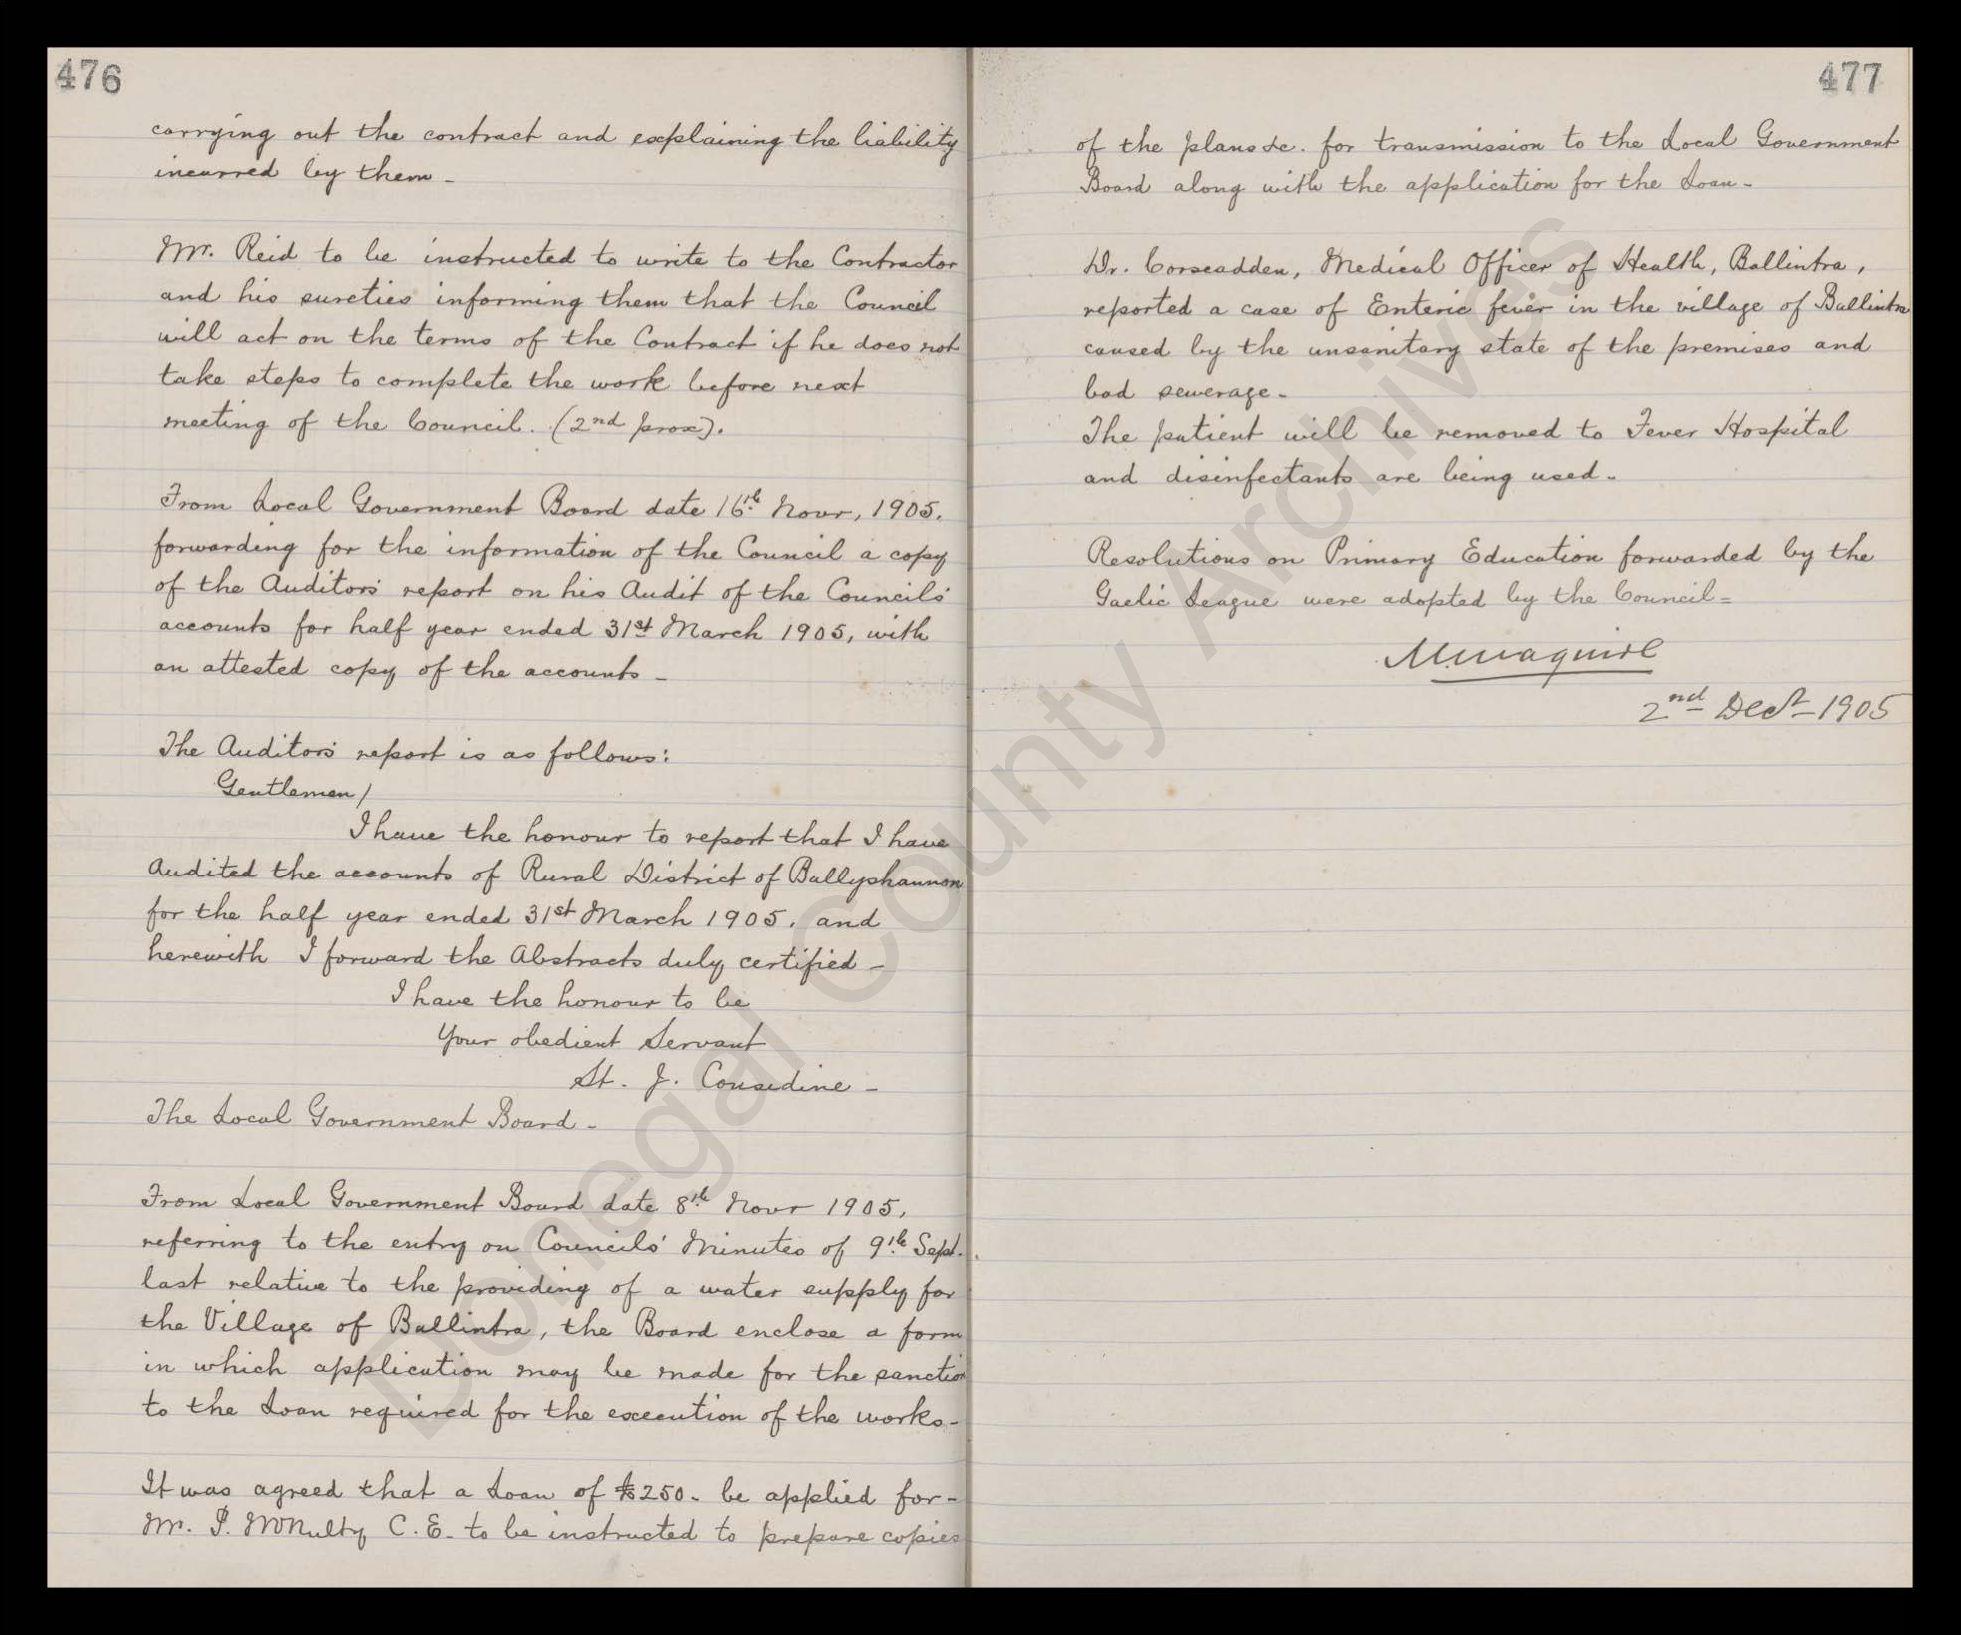 476
carrying out the contract and explaining the liability
incurred by them -
Mr. Reid to be instructed to write to the Contractor
and his sureties informing them that the Council
will act on the terms of the Contract if he does not
take steps to complete the work before next
meeting of the Council. (2nd prox).
From Local Government Board date 16th Novr, 1905.
forwarding for the information of the Council a copy
of the Auditors' report on his Audit of the Councils'
accounts for half year ended 31st March 1905, with
an attested copy of the accounts -
The Auditors' report is as follows:
Gentlemen/
I have the honour to report that I have
Audited the accounts of Rural District of Ballyshannon
for the half year ended 31st March 1905, and
herewith I forward the Abstracts duly certified -
I have the honour to be
Your obedient Servant
St. J. Consedine -
The Local Government Board -
From Local Government Board date 8th Novr 1905,
referring to the entry on Councils' Minutes of 9th Sept.
last relative to the providing of a water supply for
the Village of Ballintra, the Board enclose a form
in which application may be made for the sanction
to the Loan required for the execution of the works -
It was agreed that a Loan of £250 - be applied for -
Mr. P. McNulty C. E. to be instructed to prepare copies
477
of the plans &c. for transmission to the Local Government
Board along with the application for the Loan -
Dr. Corscadden, Medical Officer of Health, Ballintra,
reported a case of Enteric fever in the village of Ballintra
caused by the unsanitary state of the premises and
bad sewerage -
The patient will be removed to Fever Hospital
and disinfectants are being used -
Resolutions on Primary Education forwarded by the
Gaelic League were adopted by the Council =
M. Maguire
2nd Decr - 1905
Donegal County Archives